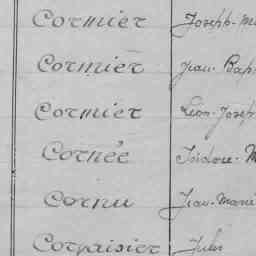 Cormier Joseph-M
Cormier Jean-Bap
Cormier Léon-Josep
Cornée Isidore-M
Cornu Jean-Marie
Corvaisier Jules